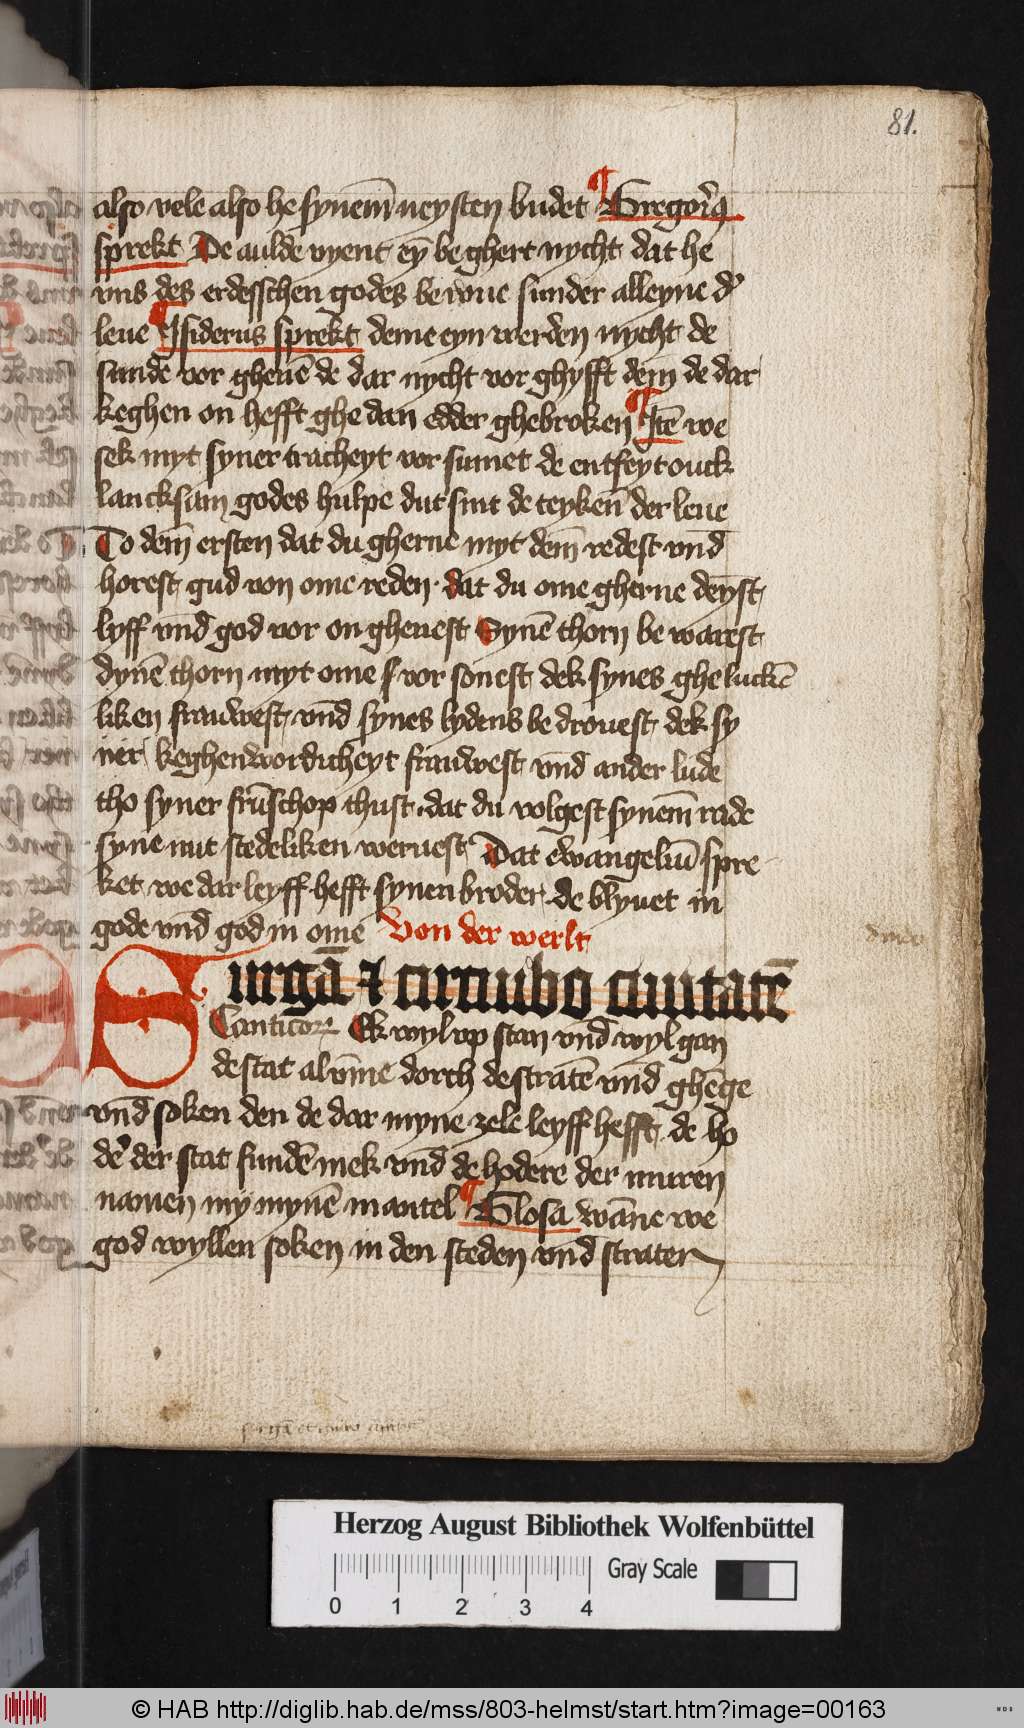 81.
also vele also he synem̄ neysten budet ¶ Gregori᷒
sprekt De aulde vyent eȳ beghert nycht dat he
vns des erdesschen godes beroue sunder alleyne d'
leue ¶ Isiderus sprekt deme eyn werden nycht de
sunde vor gheuē de dar nycht vor ghyfft dem̄ de dar
keghen on hefft ghe dan edder ghebroken ¶ Itē we
sek myt syner tracheyt vor sumet de entfeyt ouck
lancksam godes hulpe dut sint de teyken̄ der leue
To dem̄ ersten dat du gherne myt dem̄ redest vnd̄
horest gud von ome reden · dat du ome gherne deynst
lyff vnd̄ god vor on gheuest Synē thorn be warest
dynē thorn myt ome s vor sonest dek synes ghe luckē
liken frauwest vnd̄ synes lydens be drouest dek sy
ner keghenwordicheyt frauwest vnd̄ ander lude
tho syner frūschop thust · dat du volgest synem̄ rade
syne nut stedeliken weruest Dat ewangeliū spre
ket we dar leyff hefft synen broder · de blyuet in
gode vnd̄ god in ome Von der werlt
Surgā & circuibo ciuitatē
Canticoꝝ Ek wyl vp stan vnd̄ wyl gan
de stat al vm̄e dorch de stratē vnd̄ ghēge
vnd̄ soken den de dar myne zele leyff hefft · de ho
de' der stat fundē mek vnd̄ de hodere der muren
namen my mynē mantel ¶ Glosa wān̄e we
god wyllen soken in den steden vnd̄ straten
surgā et
Herzog August Bibliothek Wolfenbüttel
Gray Scale
0 1 2 3 4
© HAB http://diglib.hab.de/mss/803-helmst/start.htm?image=00163